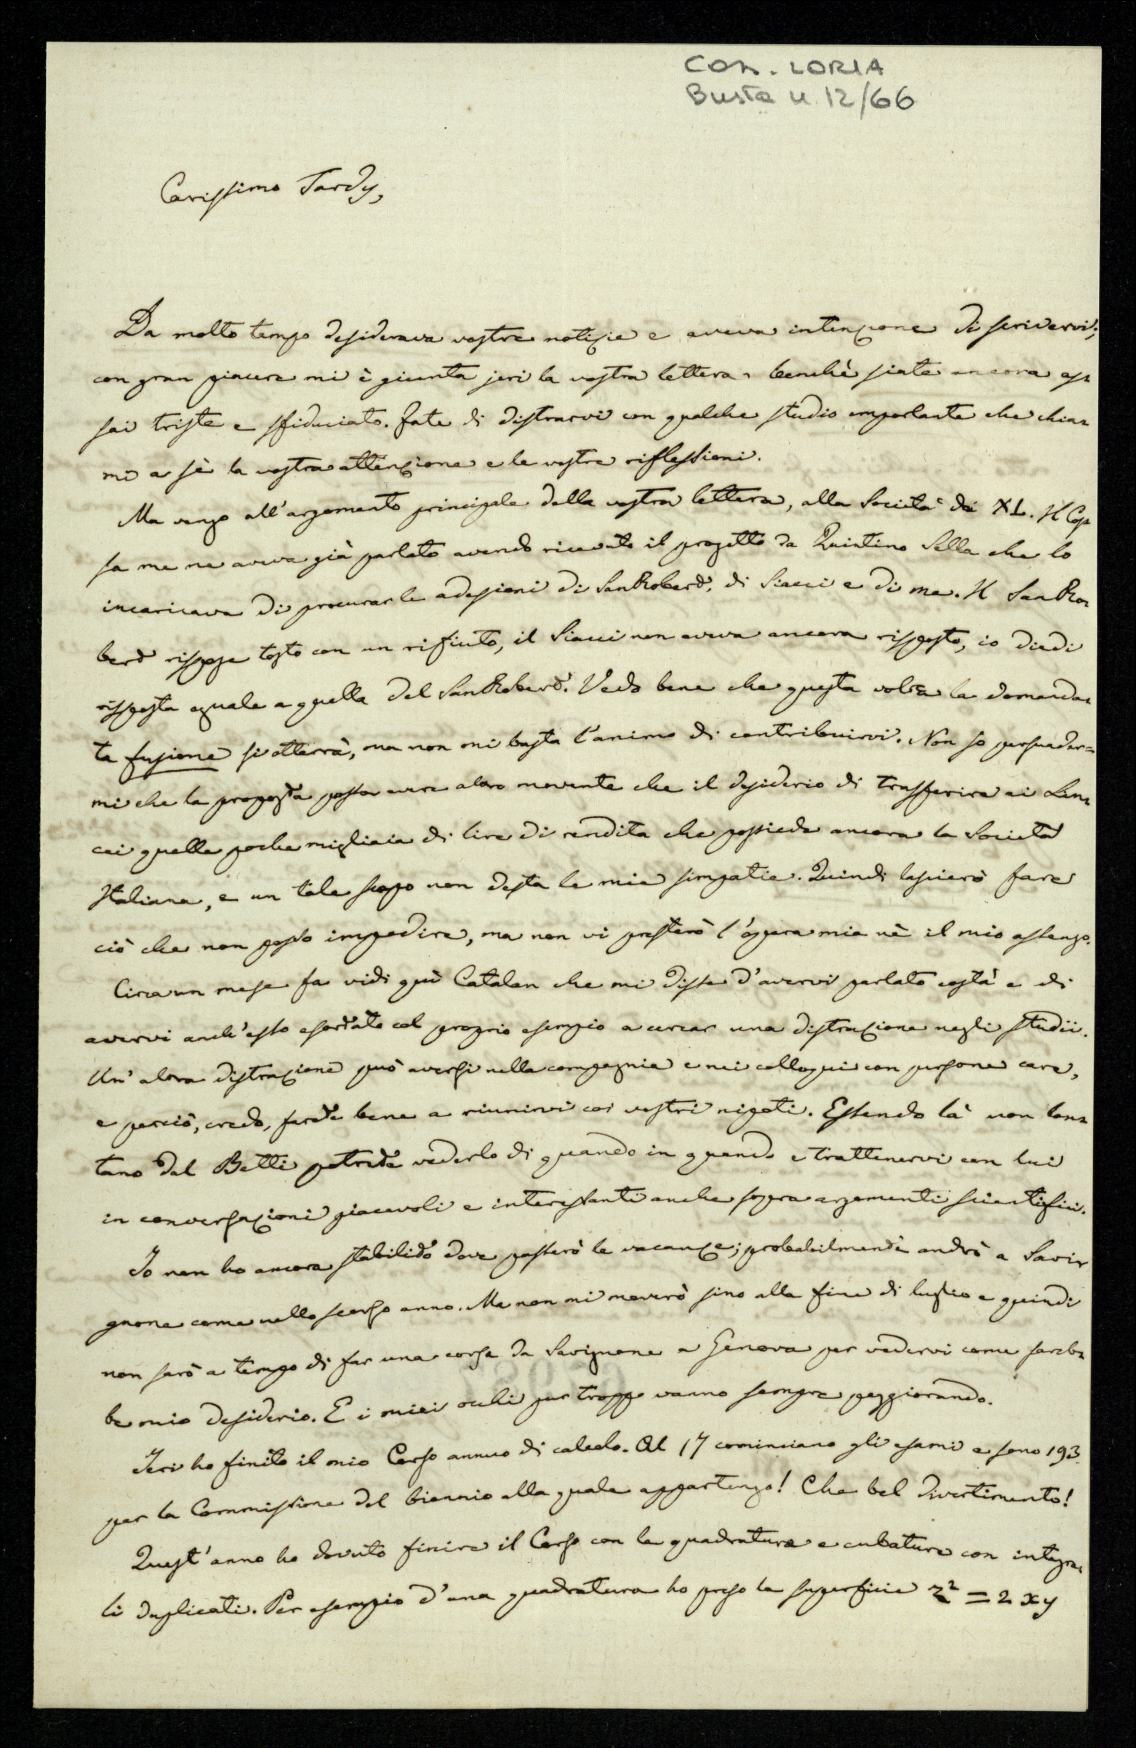 Con. LORIA
Busta n. 12/66
Carissimo Tardy,
Da molto tempo desiderava vostre notizie e aveva intenzione di scrivervi;
con gran piacere mi è giunta jeri la vostra lettera, benchè siate ancora as=
sai triste e sfiduciato. Fate di distrarvi con qualche studio importante che chia=
mi a sè la vostra attenzione e le vostre riflessioni.
Ma vengo all'argomento principale della vostra lettera, alla Società dei XL. Il Cos=
sa me ne aveva già parlato avendo ricevuto il progetto da Quintino Sella che lo
incaricava di procurar le adesioni di San Robert, di Siacci e di me. Il San Ro=
bert rispose tosto con un rifiuto, il Siacci non aveva ancora risposto, io diedi
risposta eguale a quella del San Robert. Vedo bene che questa volta la domanda=
ta fusione si otterrà, ma non mi basta l'animo di contribuirvi. Non so persuader=
mi che la proposta possa avere altro movente che il desiderio di trasferire ai Lin=
cei quelle poche migliaia di lire di rendita che possiede ancora la Società
Italiana, e un tale scopo non desta le mie simpatie. Quindi lascierò fare
ciò che non posso impedire, ma non vi presterò l'opera mia nè il mio assenso.
Circa un mese fa vidi quì Catalan che mi disse d'avervi parlato costà e di
avervi anch'esso esortato col proprio esempio a cercar una distrazione negli studii.
Un'altra distrazione può aversi nella compagnia e nei colloqui con persone care,
e perciò, credo, farete bene a riunirvi coi vostri nipoti. Essendo là non lon=
tano dal Betti potrete vederlo di quando in quando e trattenervi con lui
in conversazioni piacevoli e interessanti anche sopra argomenti scientifici.
Io non ho ancora stabilito dove passerò le vacanze; probabilmente andrò a Savi=
gnone come nello scorso anno. Ma non mi moverò sino alla fine di luglio e quindi
non sarò a tempo di far una corsa da Savignone a Genova per vedervi come sareb=
be mio desiderio. E i miei occhi pur troppo vanno sempre peggiorando.
Jeri ho finito il mio Corso annuo di calcolo. Al 17 cominciano gli esami e sono 193
per la Commissione del biennio alla quale appartengo! Che bel divertimento!
Quest'anno ho dovuto finire il Corso con la quadratura e cubatura con integra=
li duplicati. Per esempio d'una quadratura ho preso la superficie z² = 2xy